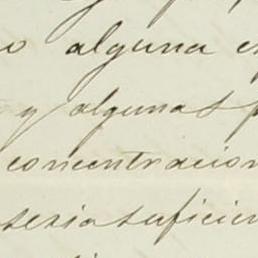 o alguna e
y algunas p
concentracion
seria suficien